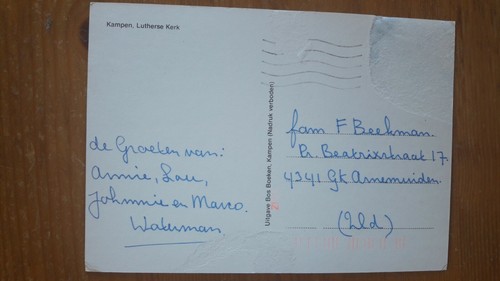 Kampen, Lutherse Kerk
de Groeten van:
Annie, Lau,
Johnnie en Marco.
Waterman
Uitgave Bos Boeken, Kampen (Nadruk verboden)
fam F Beekman.
Pr. Beatrixstraat 17.
4341 GK Arnemuiden.
(Zld)